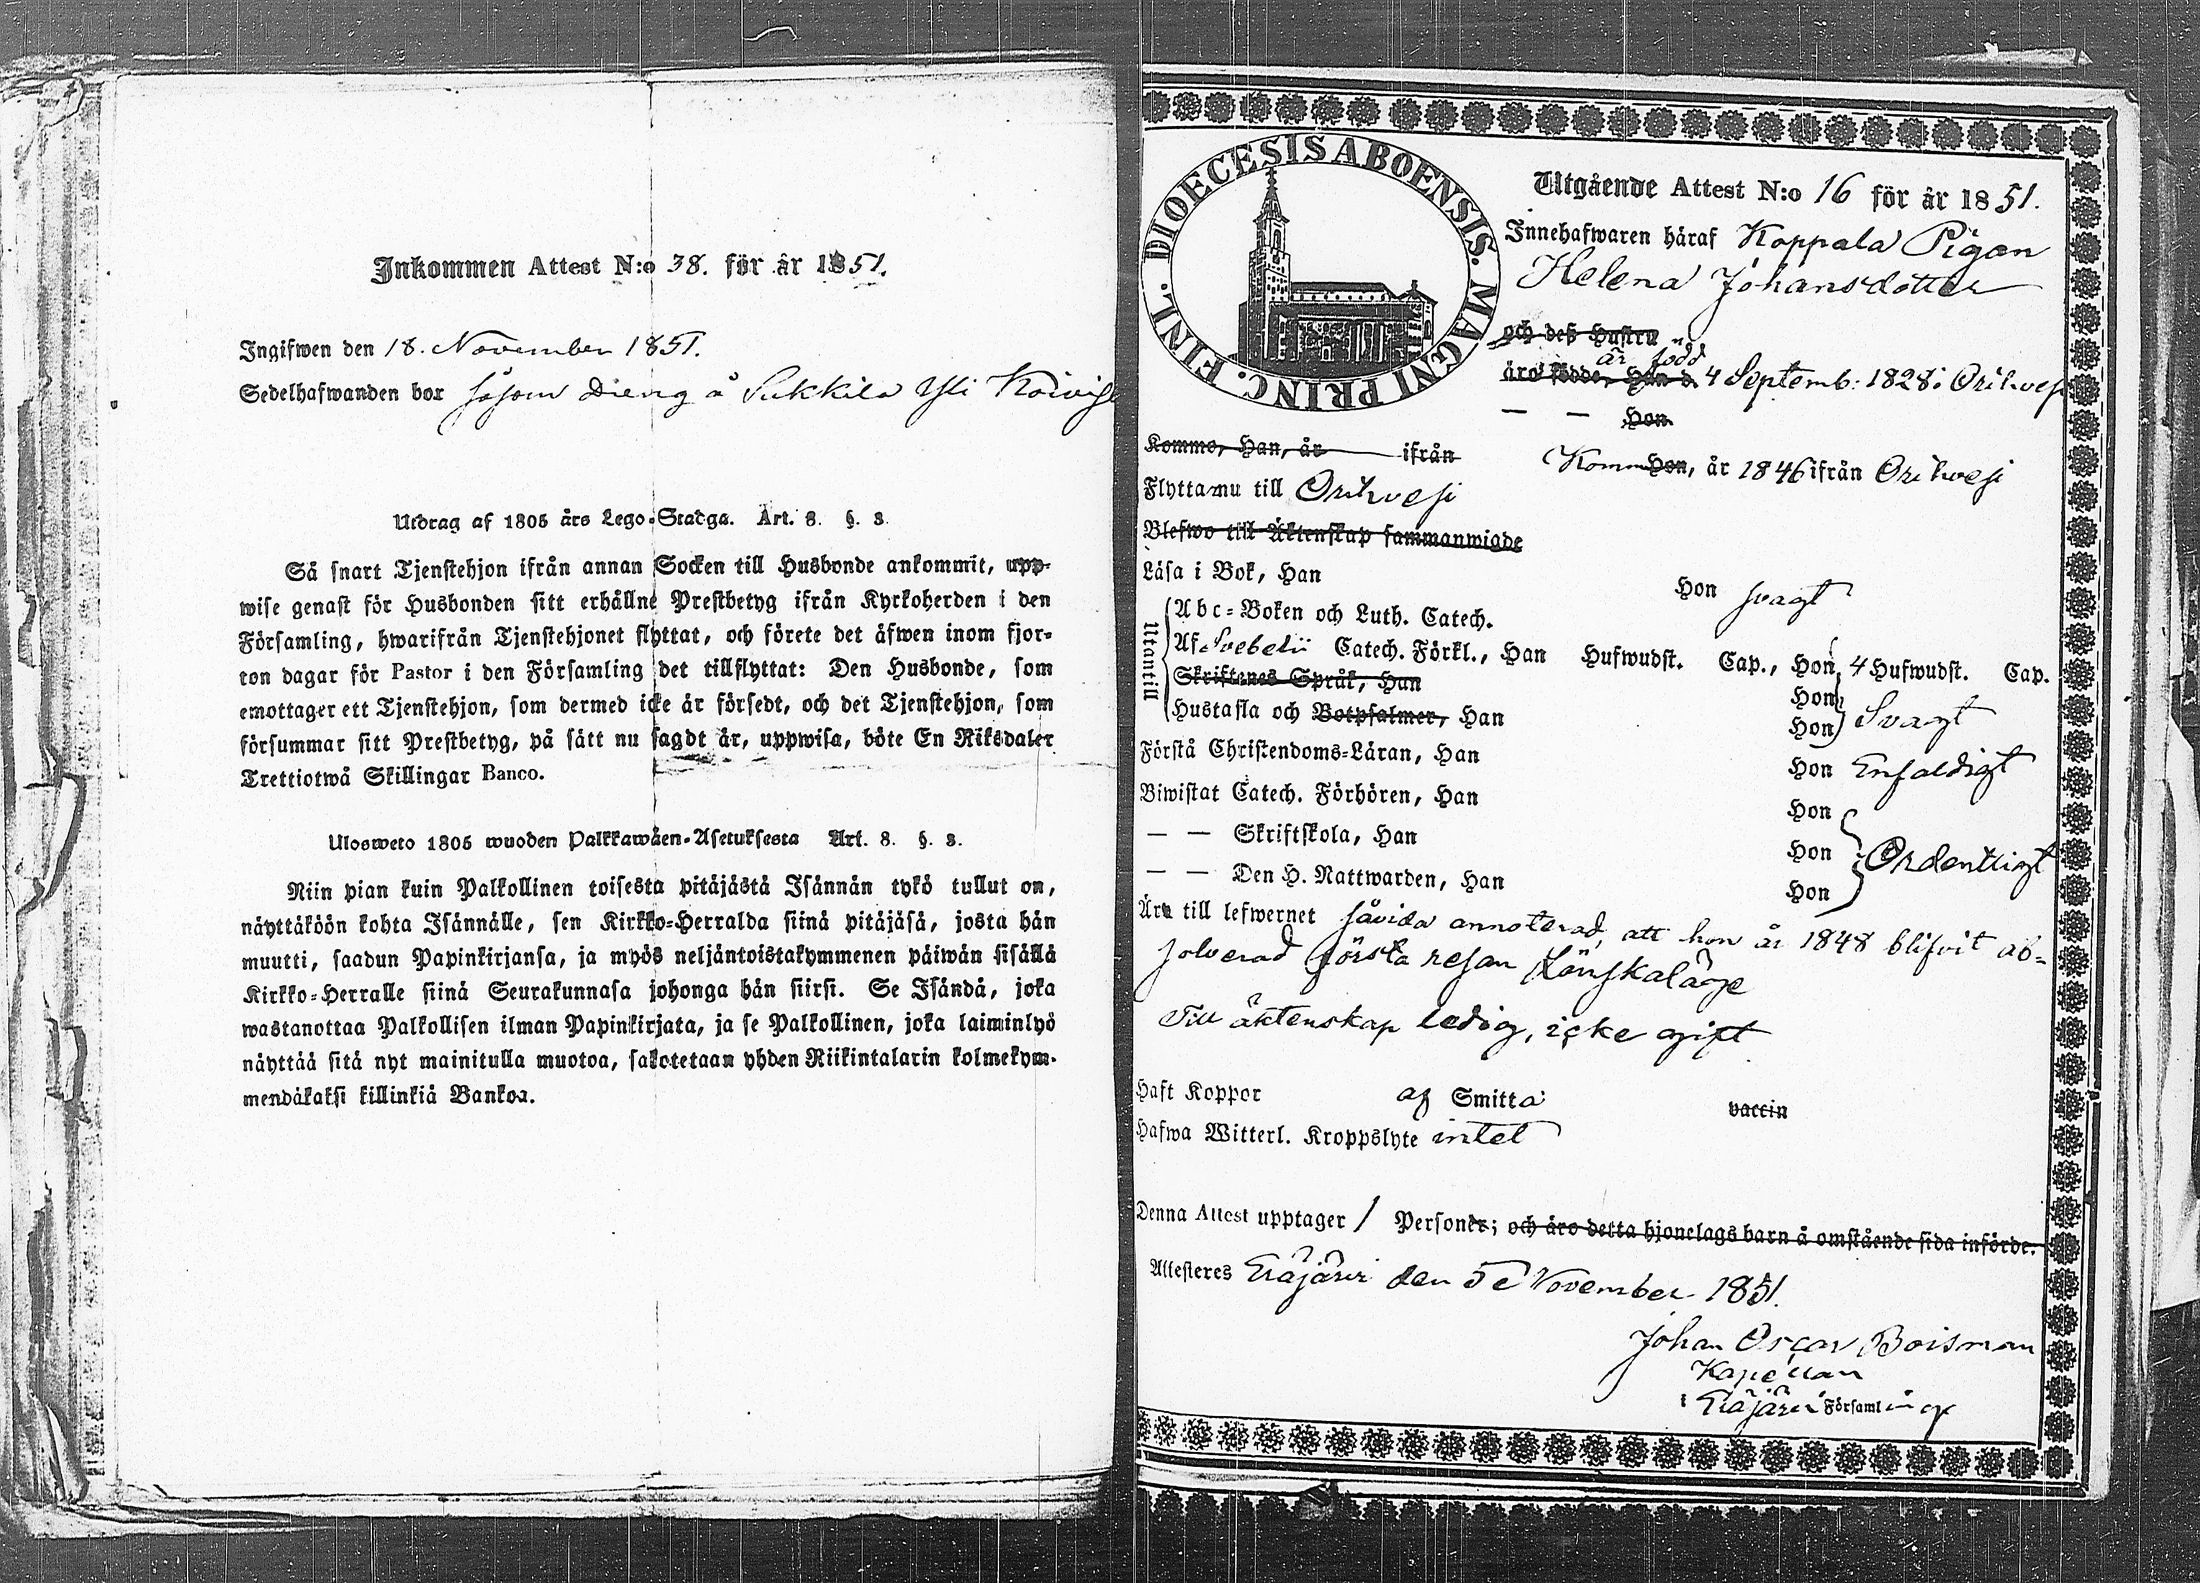 Inkommen Attest N:o 38. för år 1851.
Ingifwen den 18. November 1851.
Sedelhafwanden bor såsom Dreng å Sukkila Yli
Utdrag af 1805 års Lego-Stadga. Art. 8. §. 3.
Så snart Tjenstehjon ifrån annan Socken till Husbonde ankommit, upp-
wise genast för Husbonden sitt erhållne Prestbetyg ifrån Kyrkoherden i den
Församling, hwarifrån Tjenstehjonet flyttat, och förete det äfwen inom fjor-
ton dagar för Pastor i den Församling det tillflyttat: Den Husbonde, som
emottager ett Tjenstehjon, som dermed icke är försedt, och det Tjenstehjon, som
försummar sitt Prestbetyg, på sätt nu sagdt är, uppwisa, böte En Riksdaler
Trettiotwå Skillingar Banco.
Ulosweto 1805 wuoden Palkkawäen-Asetuksesta Art. 8. §. 3.
Niin pian kuin Palkollinen toisesta pitäjästä Isännän tykö tullut on,
näyttäköön kohta Isännälle, sen Kirkko-Herralda siinä pitäjäsä, josta hän
muutti, saadun Papinkirjansa, ja myös neljäntoistakymmenen päiwän sisällä
Kirkko-Herralle siinä Seurakunnasa johonga hän siirsi. Se Isändä, joka
wastanottaa Palkollisen ilman Papinkirjata, ja se Palkollinen, joka laiminlyö
näyttää sitä nyt mainitulla muotoa, sakotetaan yhden Riikintalarin kolmekym-
mendäkaksi killinkiä Bankoa.
DIOECESIS ABOENSIS. MAGNI PRINC. FINL.
Utgående Attest N:o 16 för år 1851.
Innehafwaren häraf Koppala Pigan
Helena Johansdotter
och deß Hustru
är född
äro födde, Han d. 4 Septemb: 1828 i Orihvesi
— — Hon
Komme, Han, år ifrån Komm Hon, år 1846 ifrån Orihvesi
Flytta nu till Orihvesi
Blefwo till Äktenskap sammanwigde
Läsa i Bok, Han Hon svagt
Utantill
Abc-Boken och Luth. Catech.
Af Svebelii Catech. Förkl., Han Hufwudst. Cap., Hon, 4 Hufwudst. Cap.
Skriftenes Språk, Han Hon
Hustafla och Botpsalmer, Han Hon Svagt
Förstå Christendoms-Läran, Han Hon Enfaldigt
Biwistat Catech. Förhören, Han Hon
— — Skriftskola, Han Hon Ordentligt
— — Den H. Nattwarden, Han Hon
Äro till lefwernet såvida annoterad, att hon år 1848 blifvit ab-
solverad första resan Lönskaläge
Till äktenskap ledig, icke gift
Haft Koppor af Smitta vaccin
Hafwa Witterl. Kroppslyte intet
Denna Attest upptager 1 Personer; och äro detta hjonelags barn å omstående sida införde.
Attesteres Eräjärvi den 5e November 1851.
Johan Oscar Boisman
Kapellan
i Eräjärvi Församling